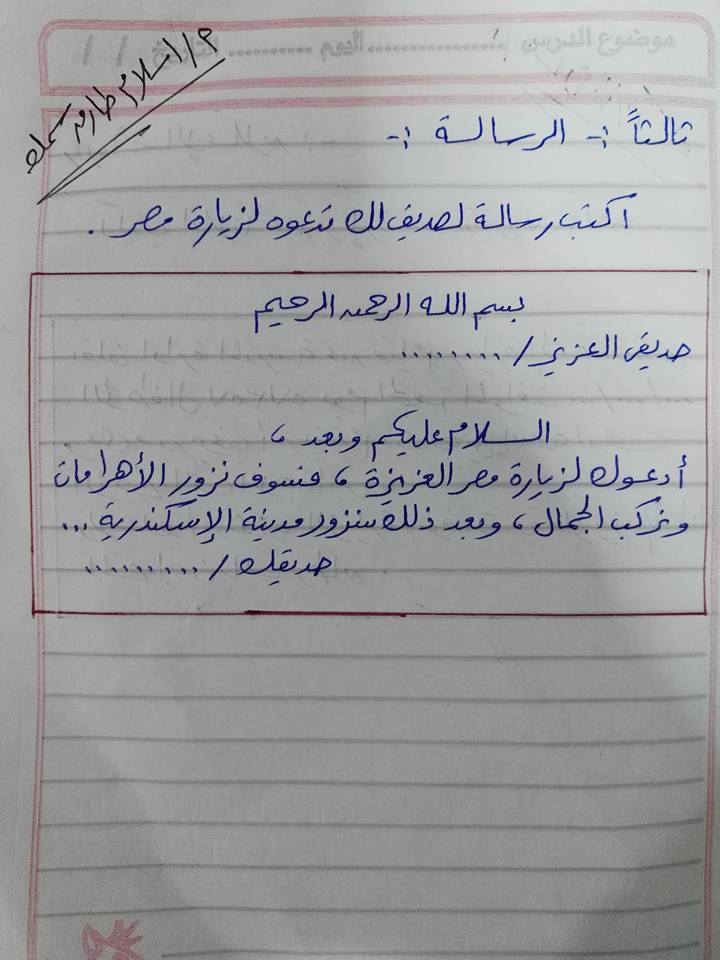 موضوع الدرس / .................. اليوم ............ التاريخ / /
م/ اسلام طارق
ثالثاً :- الرسالة :-
اكتب رسالة لصديق لك تدعوه لزيارة مصر .
بسم الله الرحمن الرحيم
صديقى العزيز / .........
السلام عليكم وبعد ،
أدعوك لزيارة مصر العزيزة ، فسوف نزور الأهرامات
ونركب الجمال ، وبعد ذلك سنزور مدينة الإسكندرية ...
صديقك / ..........